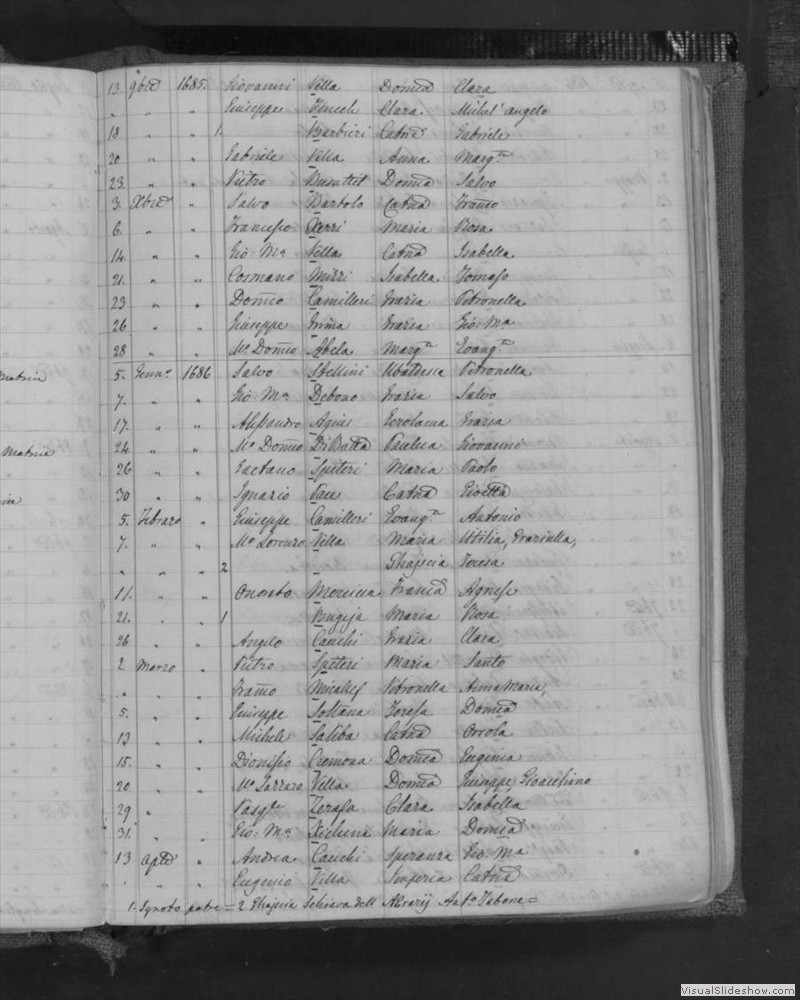 13. 9bre 1685. Giovanni Vella Domca Clara
" " " Giuseppe Fenech Clara Michel'angelo
18 " " 1. Barbieri Catna Gabriele
20 " " Gabriele Vella Anna Margta
23. " " Pietro Busuttil Domca Salvo
3. Xbre " Salvo Bartolo Catna Franco
6. " " Francesco Xerri Maria Rosa
14. " " Gio: Ma Vella Catna Isabella
21. " " Cosmano Mizzi Isabella Tomaso
23 " " Domco Camilleri Maria Petronella
26 " " Giuseppe Grima Maria Gio: Ma
28 " " Mo Domco Abela Margta Evangta
5. Genno 1686 Salvo Stellini Ubaldesca Petronella
7. " " Gio: Ma Debono Maria Salvo
17. " " Alessandro Agius Gerolama Maria
24. " " Mo Domco DiBatta Paulica Giovanni
26 " " Gaetano Spiteri Maria Paolo
30 " " Ignazio Pace Catna Gioetta
5. Febraro " Giuseppe Camilleri Evangta Antonio
7. " " Mo Lorenzo Vella Maria Utilia, Graziulla,
" " " 2 Ehajscia Teresa
11. " " Onorato Agnese
21. " " 1 Bugeja Maria Rosa
26 " " Angelo Cauchi Maria Clara
2 Marzo " Pietro Spiteri Maria Santo
" " " Franco Micallef Petronella Anna Maria,
5. " " Giuseppe Soltana Teresa Domca
13 " " Michele Saliba Catna Orsola
15. " " Dionisio Cremona Domca Eugenia
20 " " Mo Lazzaro Vella Domca Giuseppe, Gioacchino
29 " Pasqle Zerafa Clara Isabella
31. " " Gio: Ma Xicluna Maria Domca
13 Aple " Andrea Cauchi Speranza Gio: Ma
" " " Eugenio Vella Imperia Catna
1. Ignoto patre = 2 Ehajscia Schiava dell Anto Tabone =
Matrice
Matrice
VisualSlideshow.com